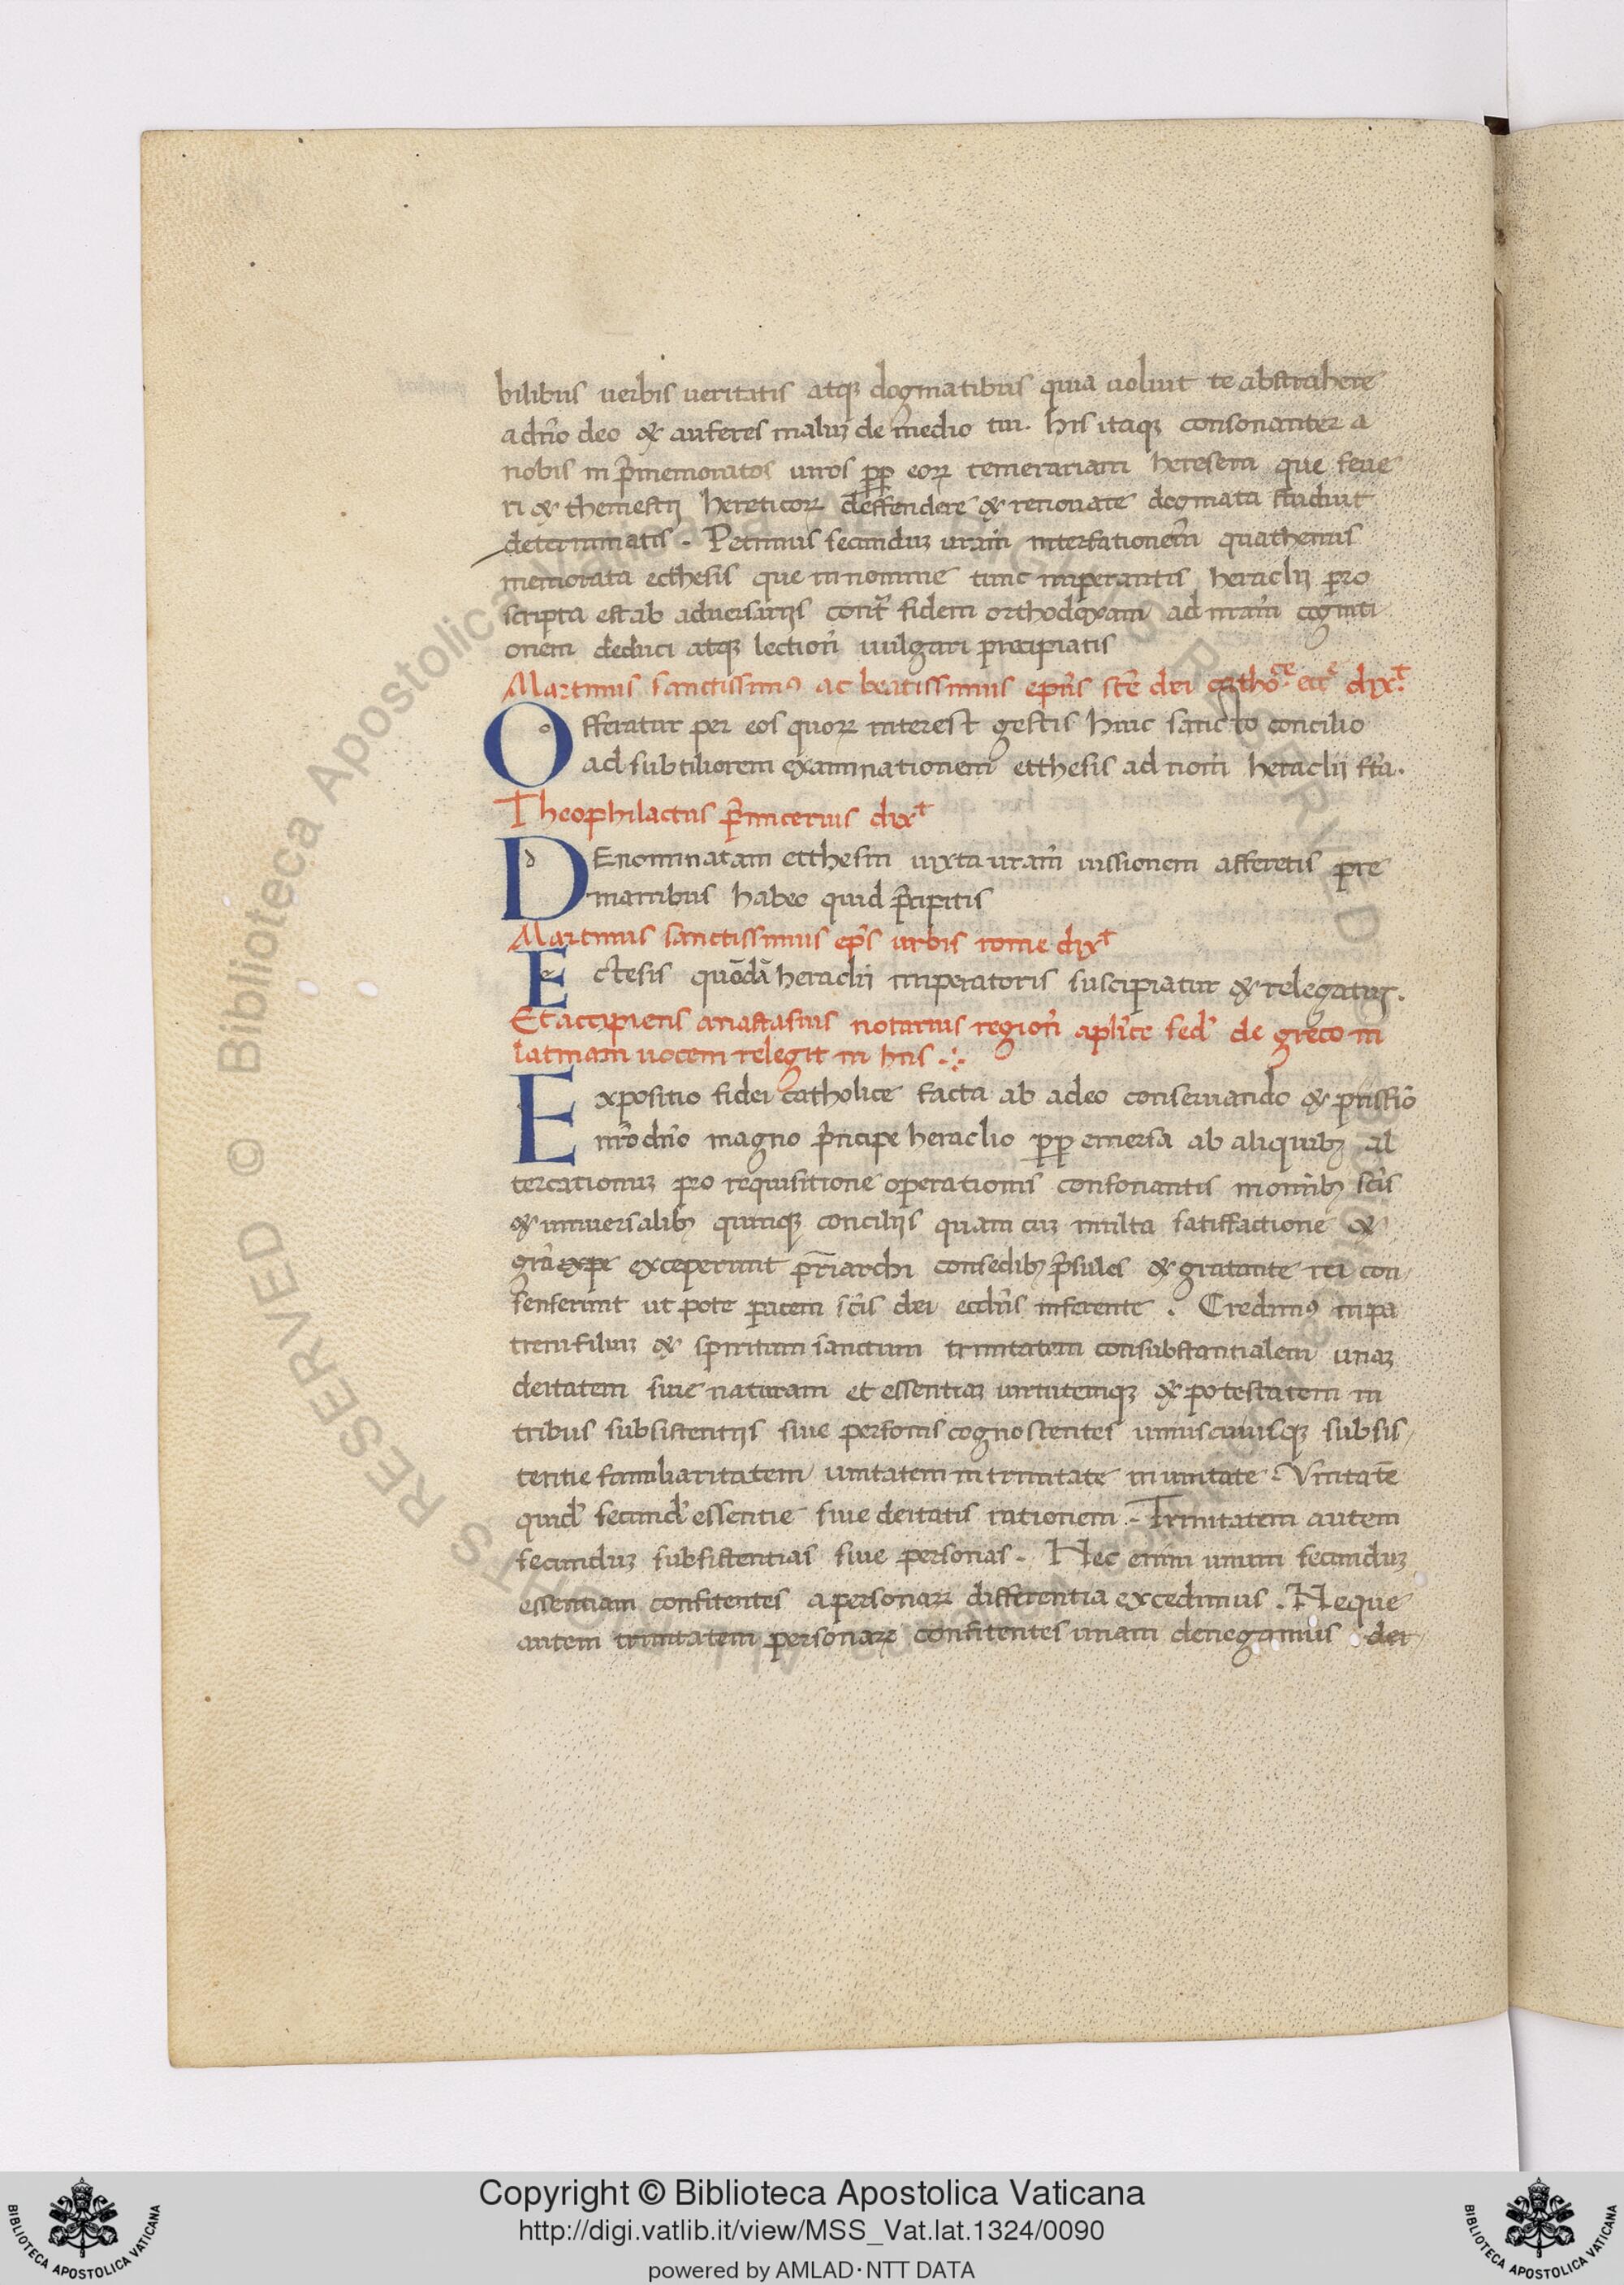 bilibus uerbis ueritatis atqꝫ dogmatibus quia uoluit te abstrahere
a dño deo & auferes maluꝫ de medio tui. his itaqꝫ consonanter a
nobis in p̄memoratos uiros ꝓp̱ eoꝝ temerariam heresem que seue
ri & themestij hereticoꝝ deffendere & renouare dogmata studuit
determinatis. Petimus secunduꝫ uram̄ interfationem̄ quathenus
memorata ecthesis que in nomine tunc imperantis heraclij pro
scripta est ab aduersarijs cont̄ fidem orthodoxam ad nram̄ cogniti
onem deduci atqꝫ lection̄ uulgari precipiatis
Martinus sanctissimꝰ ac beatissimus epūs scē dei cathoᶜᵉ eccᵉ dixᵗ
Offeratur per eos quoꝝ interest gestis huic sancto concilio
ad subtiliorem examinationem etthesis ad nom̄ heraclii fc̄a.
Theophilactus p̄micerius dixᵗ
DEnominatam etthesin iuxta uram̄ iussionem afferetis pre
manibus habeo quid p̄cipitis
Martinus sanctissimus ep̄s urbis rome dixᵗ
Ectesis quōdā heraclii imperatoris suscipiatur & relegatur.
Et accipiens anastasius notarius region̄ aplīce sed̄ de greco in
latinam uocem relegit in hiis
Expositio fidei catholice facta ab a deo conseruando & p̄ijssiō
nr̄o dño magno p̄ncipe heraclio ꝓp̱ emersa ab aliquibꝫ al
tercationuꝫ pro requisitione operationis consonantis in omībꝫ scīs
& uniuersalibꝫ quinqꝫ concilijs quam cuꝫ multa satisfactione &
grā expe exceperunt pr̄iarchi con sedibꝫ p̄sules & gratante rei con
senserunt ut pote pacem scīs dei eccl̄ijs inferente. Credimꝰ in pa
trem filiuꝫ & spiritum sanctum trinitatem consubstantialem unaꝫ
deitatem siue naturam et essentiaꝫ uirtutemqꝫ & potestatem in
tribus subsistentijs siue personis cognoscentes uniuscuiusqꝫ subsis
tentie familiaritatem unitatem in trinitate in unitate. Vnitatē
quid̄ secund̄ essentie siue deitatis rationem. Trinitatem autem
secunduꝫ subsistentias siue personas. Nec enim unum secunduꝫ
essentiam confitentes a personaꝝ differentia excedimus. Neque
autem trinitatem personaꝝ confitentes unam denegamus dei
Copyright © Biblioteca Apostolica Vaticana
http://digi.vatlib.it/view/MSS_Vat.lat.1324/0090
powered by AMLAD·NTT DATA
BIBLIOTECA APOSTOLICA VATICANA
BIBLIOTECA APOSTOLICA VATICANA